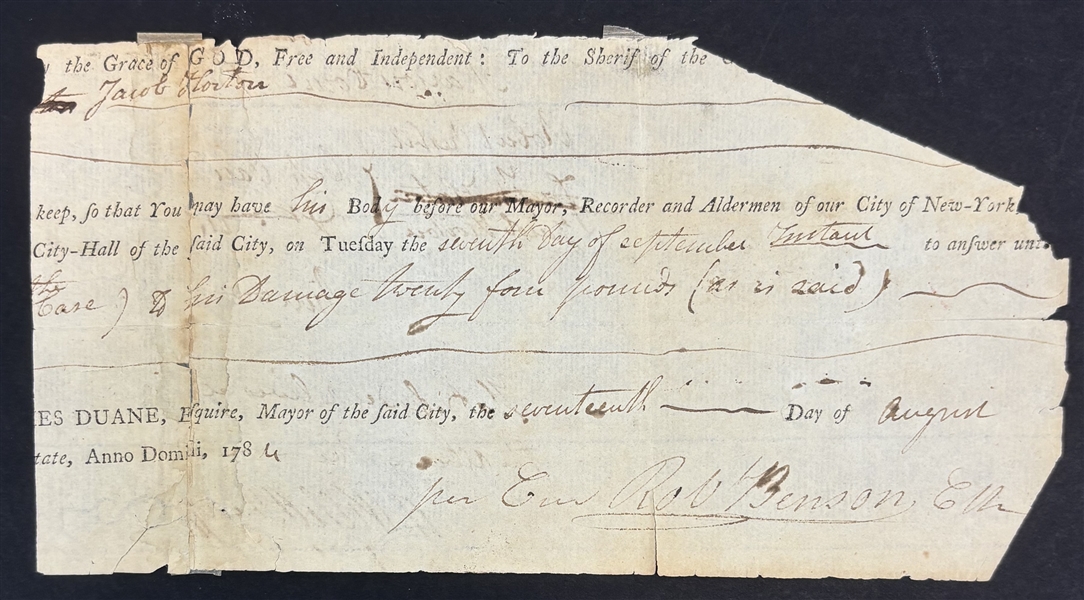 the Grace of GOD, Free and Independent: To the Sherif of the C
Jacob Horton
keep, ſo that You may have his Body before our Mayor, Recorder and Aldermen of our City of New-York,
City-Hall of the ſaid City, on Tueſday the seventh Day of september Instant to anſwer unt
the
Case) To his Damage twenty four pounds (as is said)
ES DUANE, Eſquire, Mayor of the ſaid City, the seventeenth Day of august
tate, Anno Domini, 1784
per Cur Robt Benson, Clk